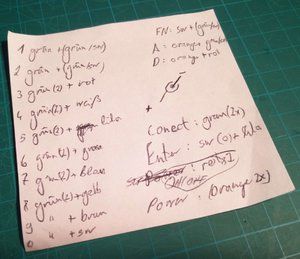 1 grün + (grün/sw)
2 grün + (grün/sw)
3 grün(2) + rot
4 grün(2) + weiß
5 grün(2) + lila
6 grün(2) + grau
7 grün(2) + blau
8 grün(2) + gelb
9 " + braun
0 " + sw
FN: sw + (grün/sw)
A: orange +
D: orange + rot
+
Conect: grau (2x)
Enter: sw (0) + lila
ON/OFF
Power: (Orange 2x)